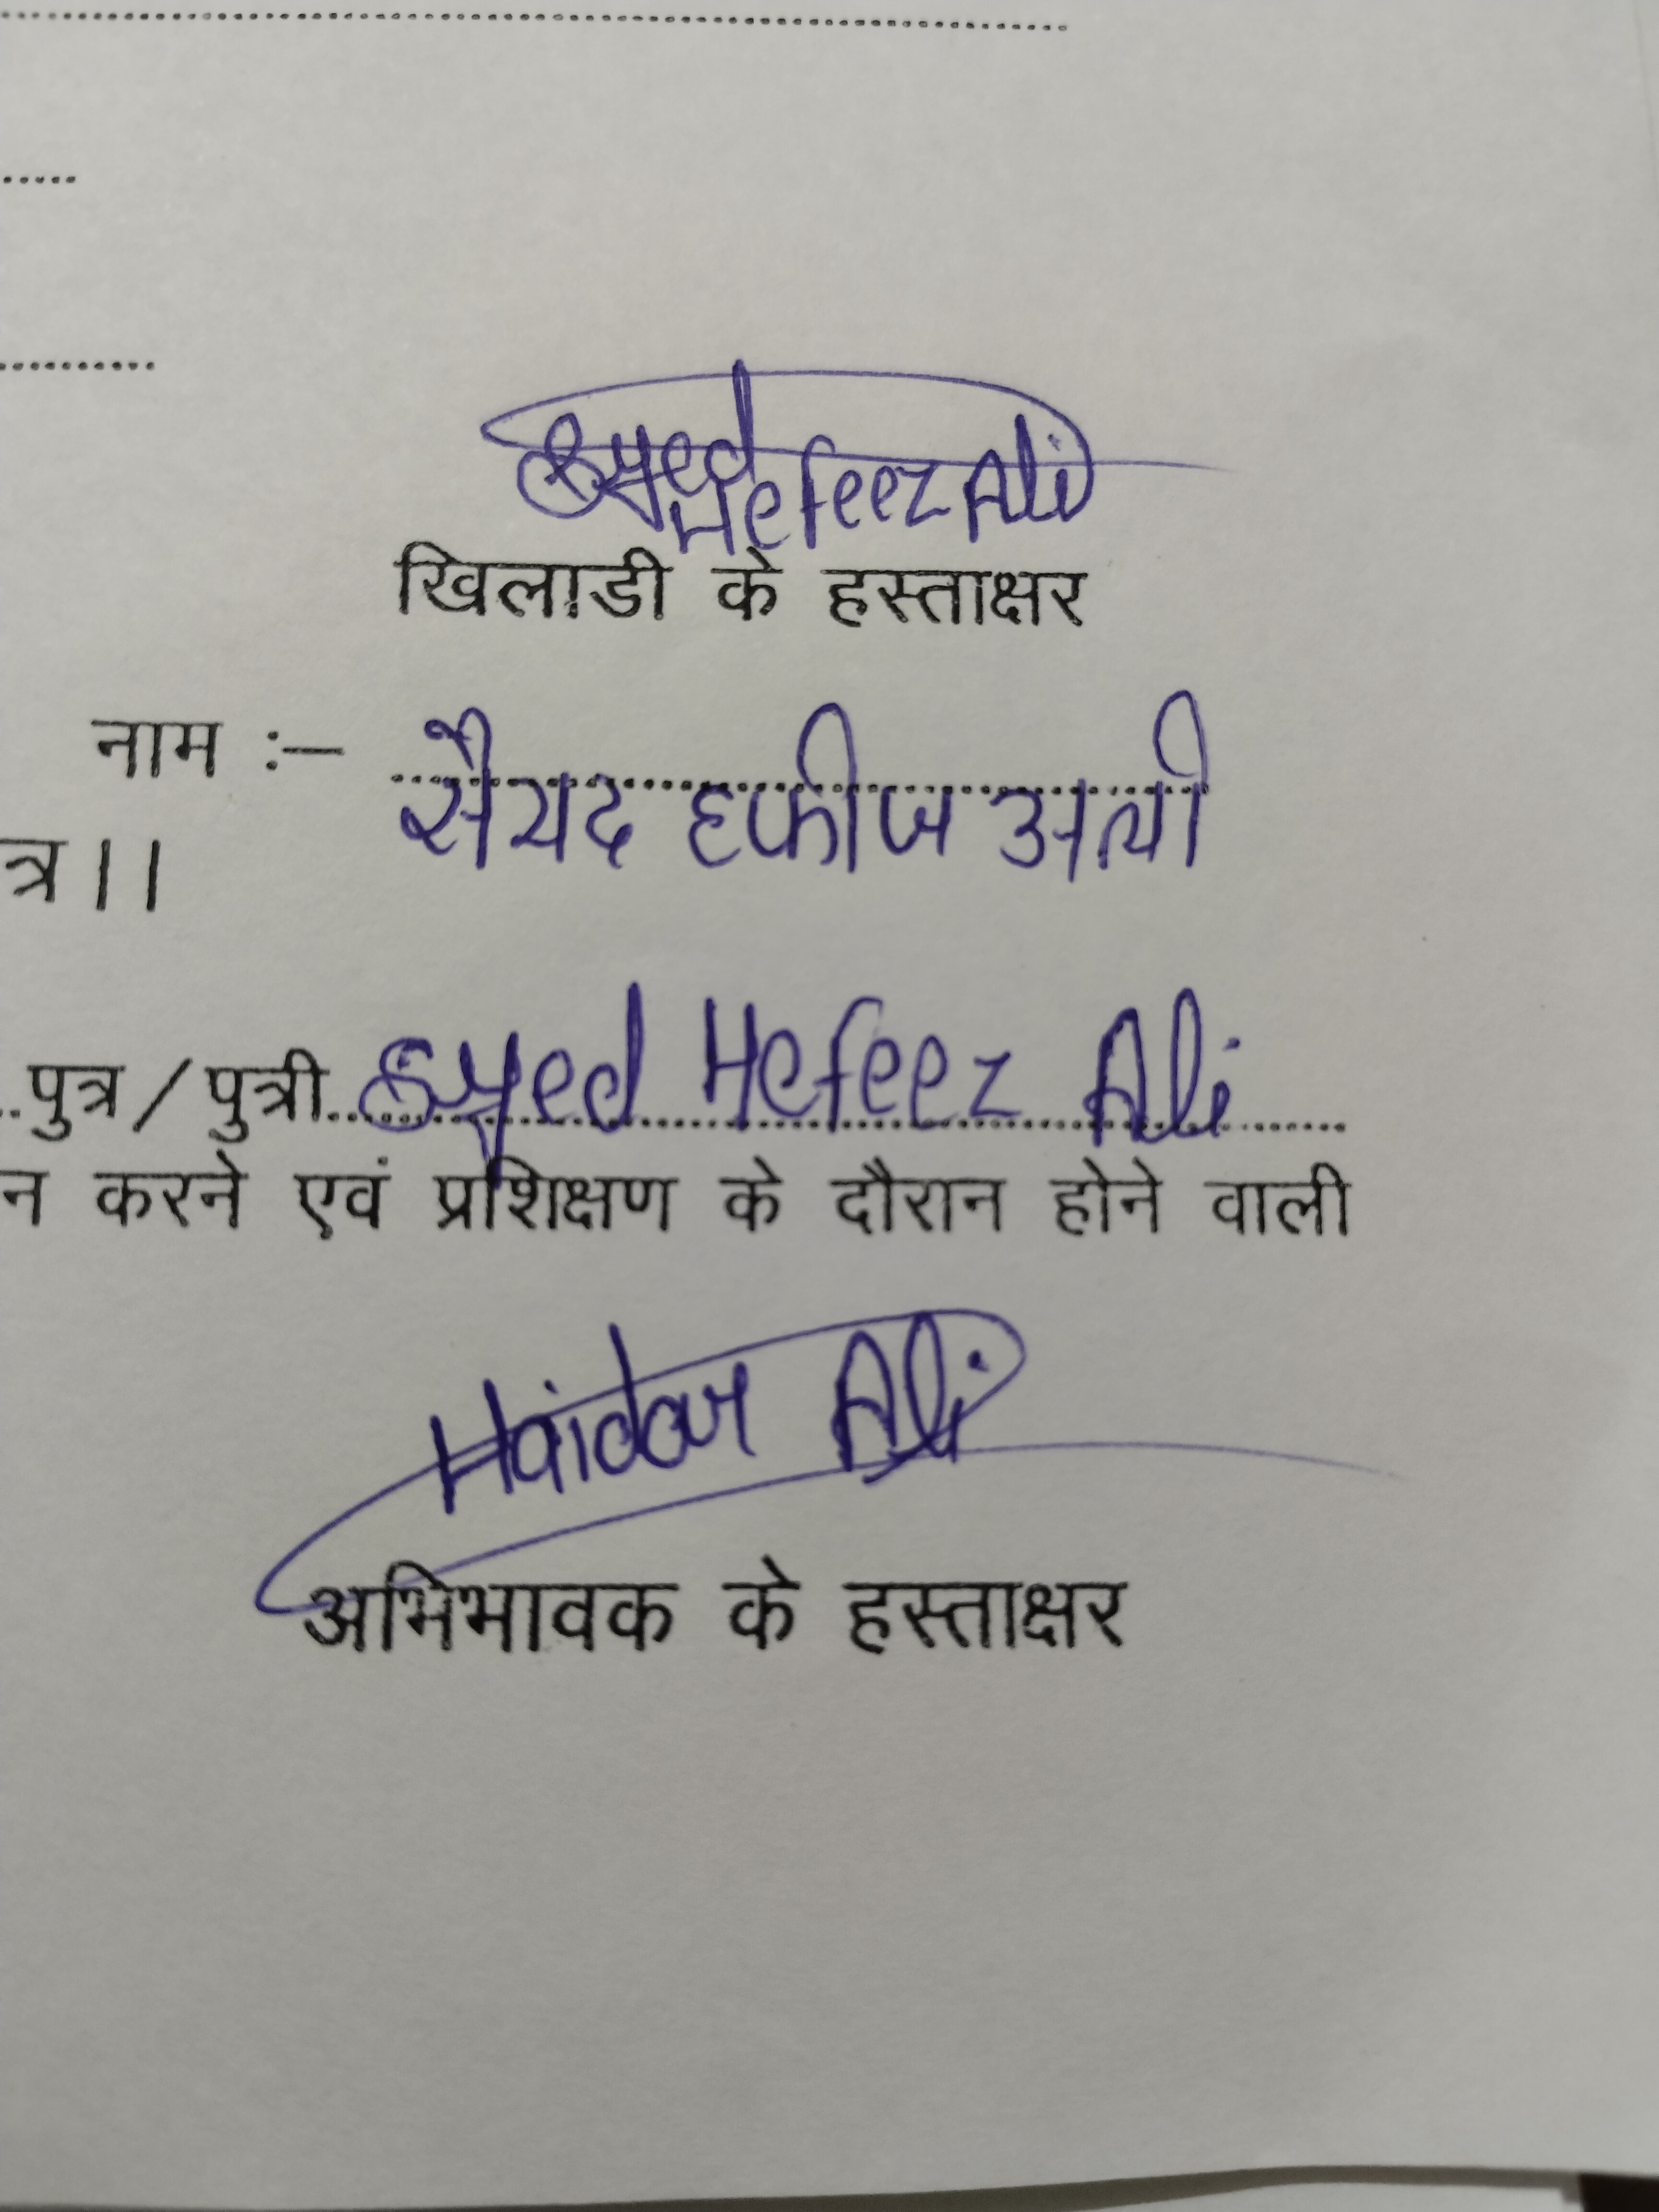 Syed
Hefeez Ali
खिलाडी के हस्ताक्षर
नाम :– सैयद हफीज अली
त्र।।
..पुत्र/पुत्री..Syed Hefeez Ali
न करने एवं प्रशिक्षण के दौरान होने वाली
Haidar Ali
अभिभावक के हस्ताक्षर